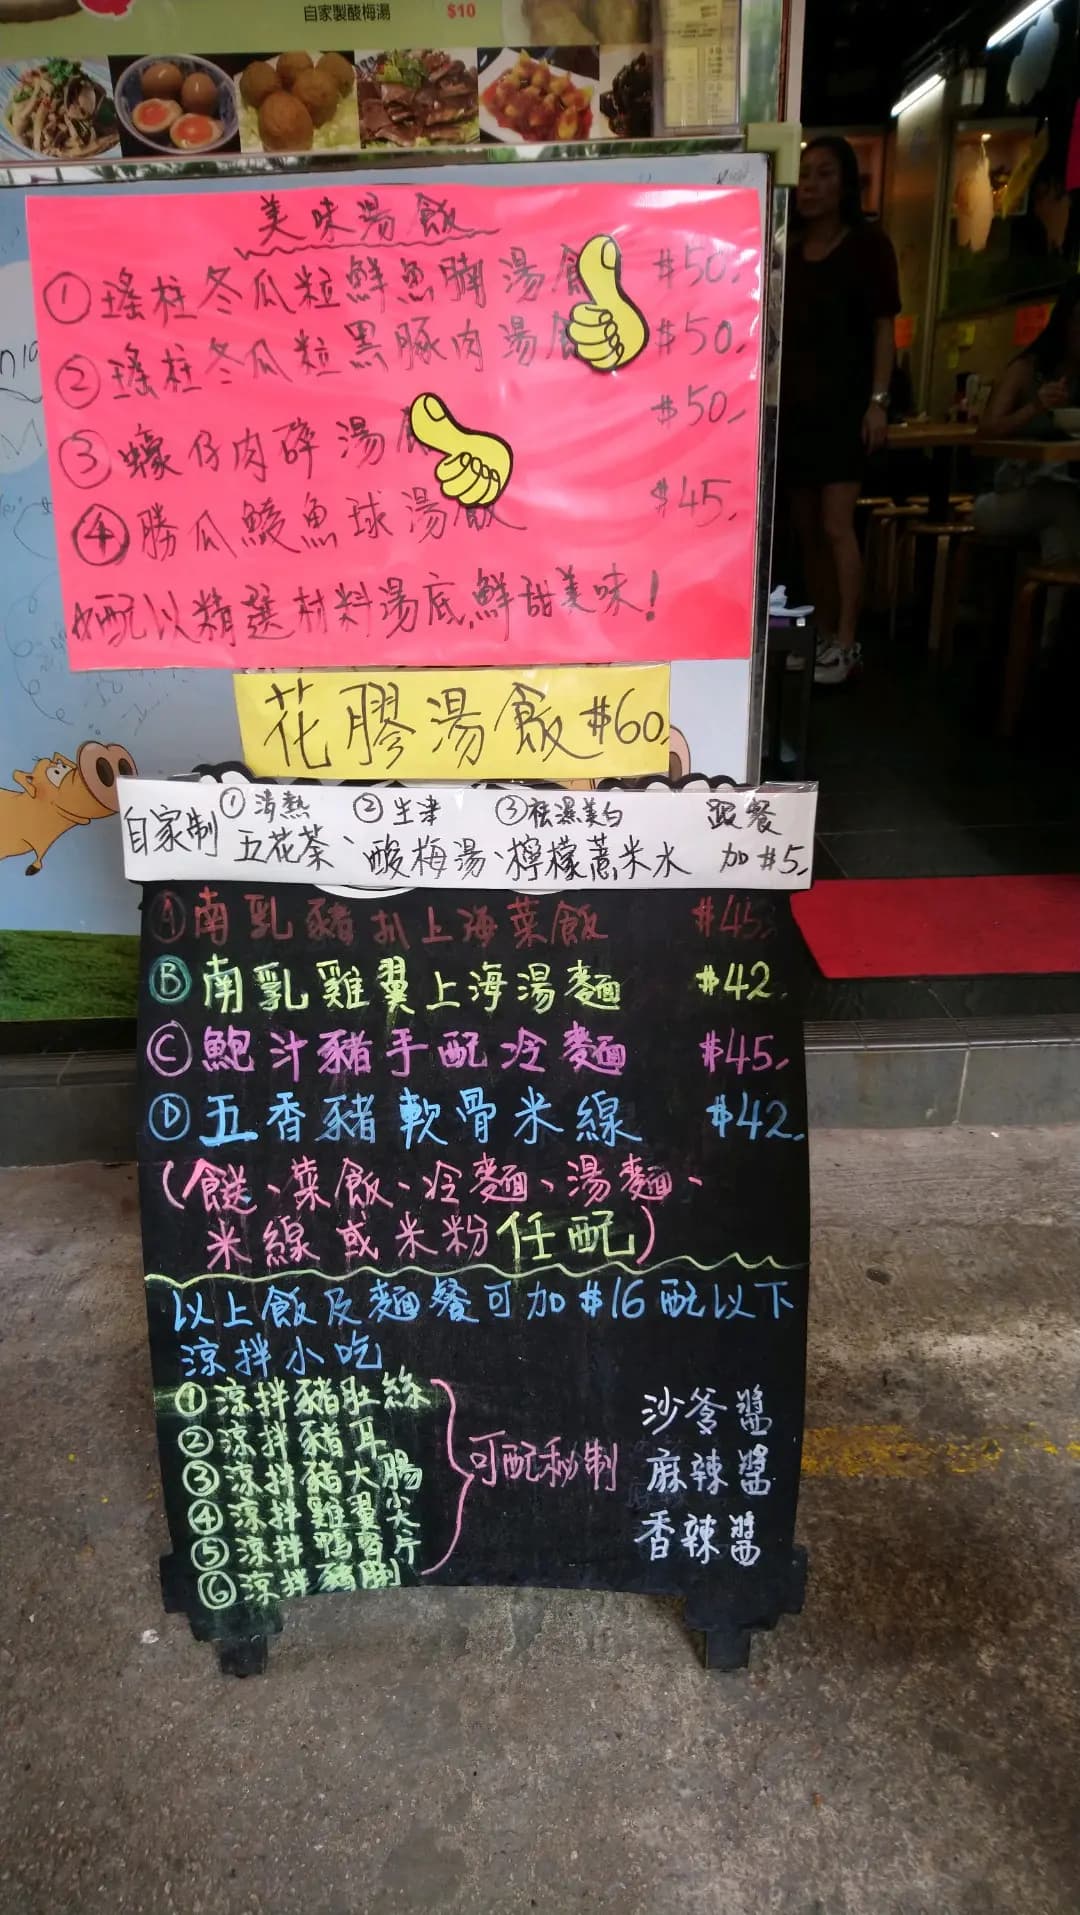 自家製酸梅湯 $10
美味湯飯
① 瑤柱冬瓜粒鮮魚腩湯飯 $50
② 瑤柱冬瓜粒黑豚肉湯飯 $50
③ 蠔仔肉碎湯飯 $50
④ 勝瓜鯪魚球湯飯 $45
配以精選材料湯底,鮮甜美味!
花膠湯飯 $60
①清熱 ②生津 ③祛濕美白 跟餐
自家制 五花茶、酸梅湯、檸檬薏米水 加$5
Ⓐ 南乳豬扒上海菜飯 $45
Ⓑ 南乳雞翼上海湯麵 $42
Ⓒ 鮑汁豬手配冷麵 $45
Ⓓ 五香豬軟骨米線 $42
(餸、菜飯、冷麵、湯麵、
米線或米粉任配)
以上飯及麵餐可加$16配以下
涼拌小吃
① 涼拌豬肚絲
② 涼拌豬耳
③ 涼拌豬大腸
④ 涼拌雞翼尖
⑤ 涼拌鴨腎片
⑥ 涼拌豬脷
可配秘制
沙爹醬
麻辣醬
香辣醬